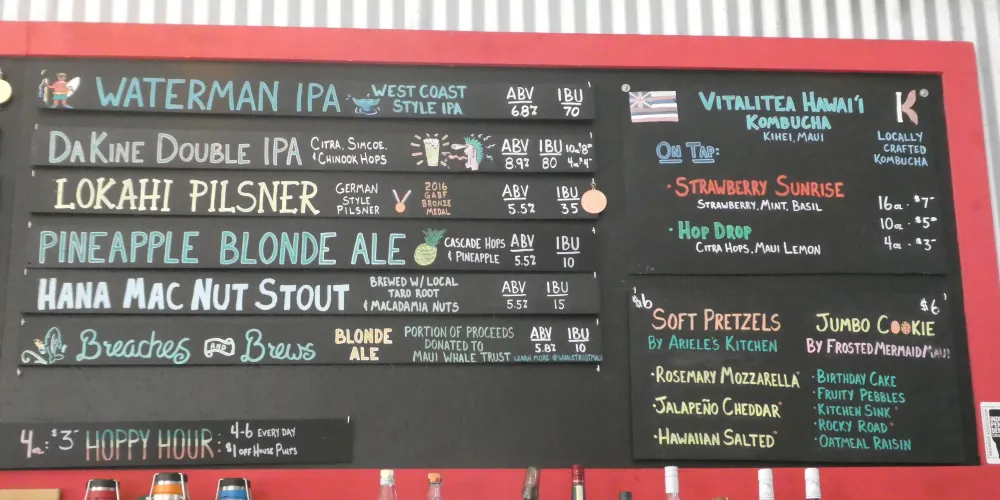 WATERMAN IPA
WEST COAST
STYLE IPA
ABV IBU
6.8% 70
DAKINE DOUBLE IPA
CITRA, SIMCOE,
& CHINOOK HOPS
ABV IBU 10oz $8
8.9% 80 4oz $4
LOKAHI PILSNER
GERMAN
STYLE
PILSNER
2016
GABF
BRONZE
MEDAL
ABV IBU
5.5% 35
PINEAPPLE BLONDE ALE
CASCADE HOPS
& PINEAPPLE
ABV IBU
5.5% 10
HANA MAC NUT STOUT
BREWED W/ LOCAL
TARO ROOT
& MACADAMIA NUTS
ABV IBU
5.5% 15
Breaches AND Brews
BLONDE
ALE
PORTION OF PROCEEDS
DONATED TO
MAUI WHALE TRUST LEARN MORE @WHALETRUSTMAUI
ABV IBU
5.8% 10
4oz: $3 HOPPY HOUR: 4-6 EVERY DAY
$1 OFF HOUSE PINTS
VITALITEA HAWAI'I
KOMBUCHA
KIHEI, MAUI
K
LOCALLY
CRAFTED
KOMBUCHA
ON TAP:
• STRAWBERRY SUNRISE
STRAWBERRY, MINT, BASIL
• HOP DROP
CITRA HOPS, MAUI LEMON
16oz • $7
10oz • $5
4oz • $3
$6
SOFT PRETZELS
BY ARIELE'S KITCHEN
• ROSEMARY MOZZARELLA
• JALAPEÑO CHEDDAR
• HAWAIIAN SALTED
$6
JUMBO COOKIE
BY FROSTEDMERMAIDMAUI
• BIRTHDAY CAKE
• FRUITY PEBBLES
• KITCHEN SINK*
• ROCKY ROAD*
• OATMEAL RAISIN